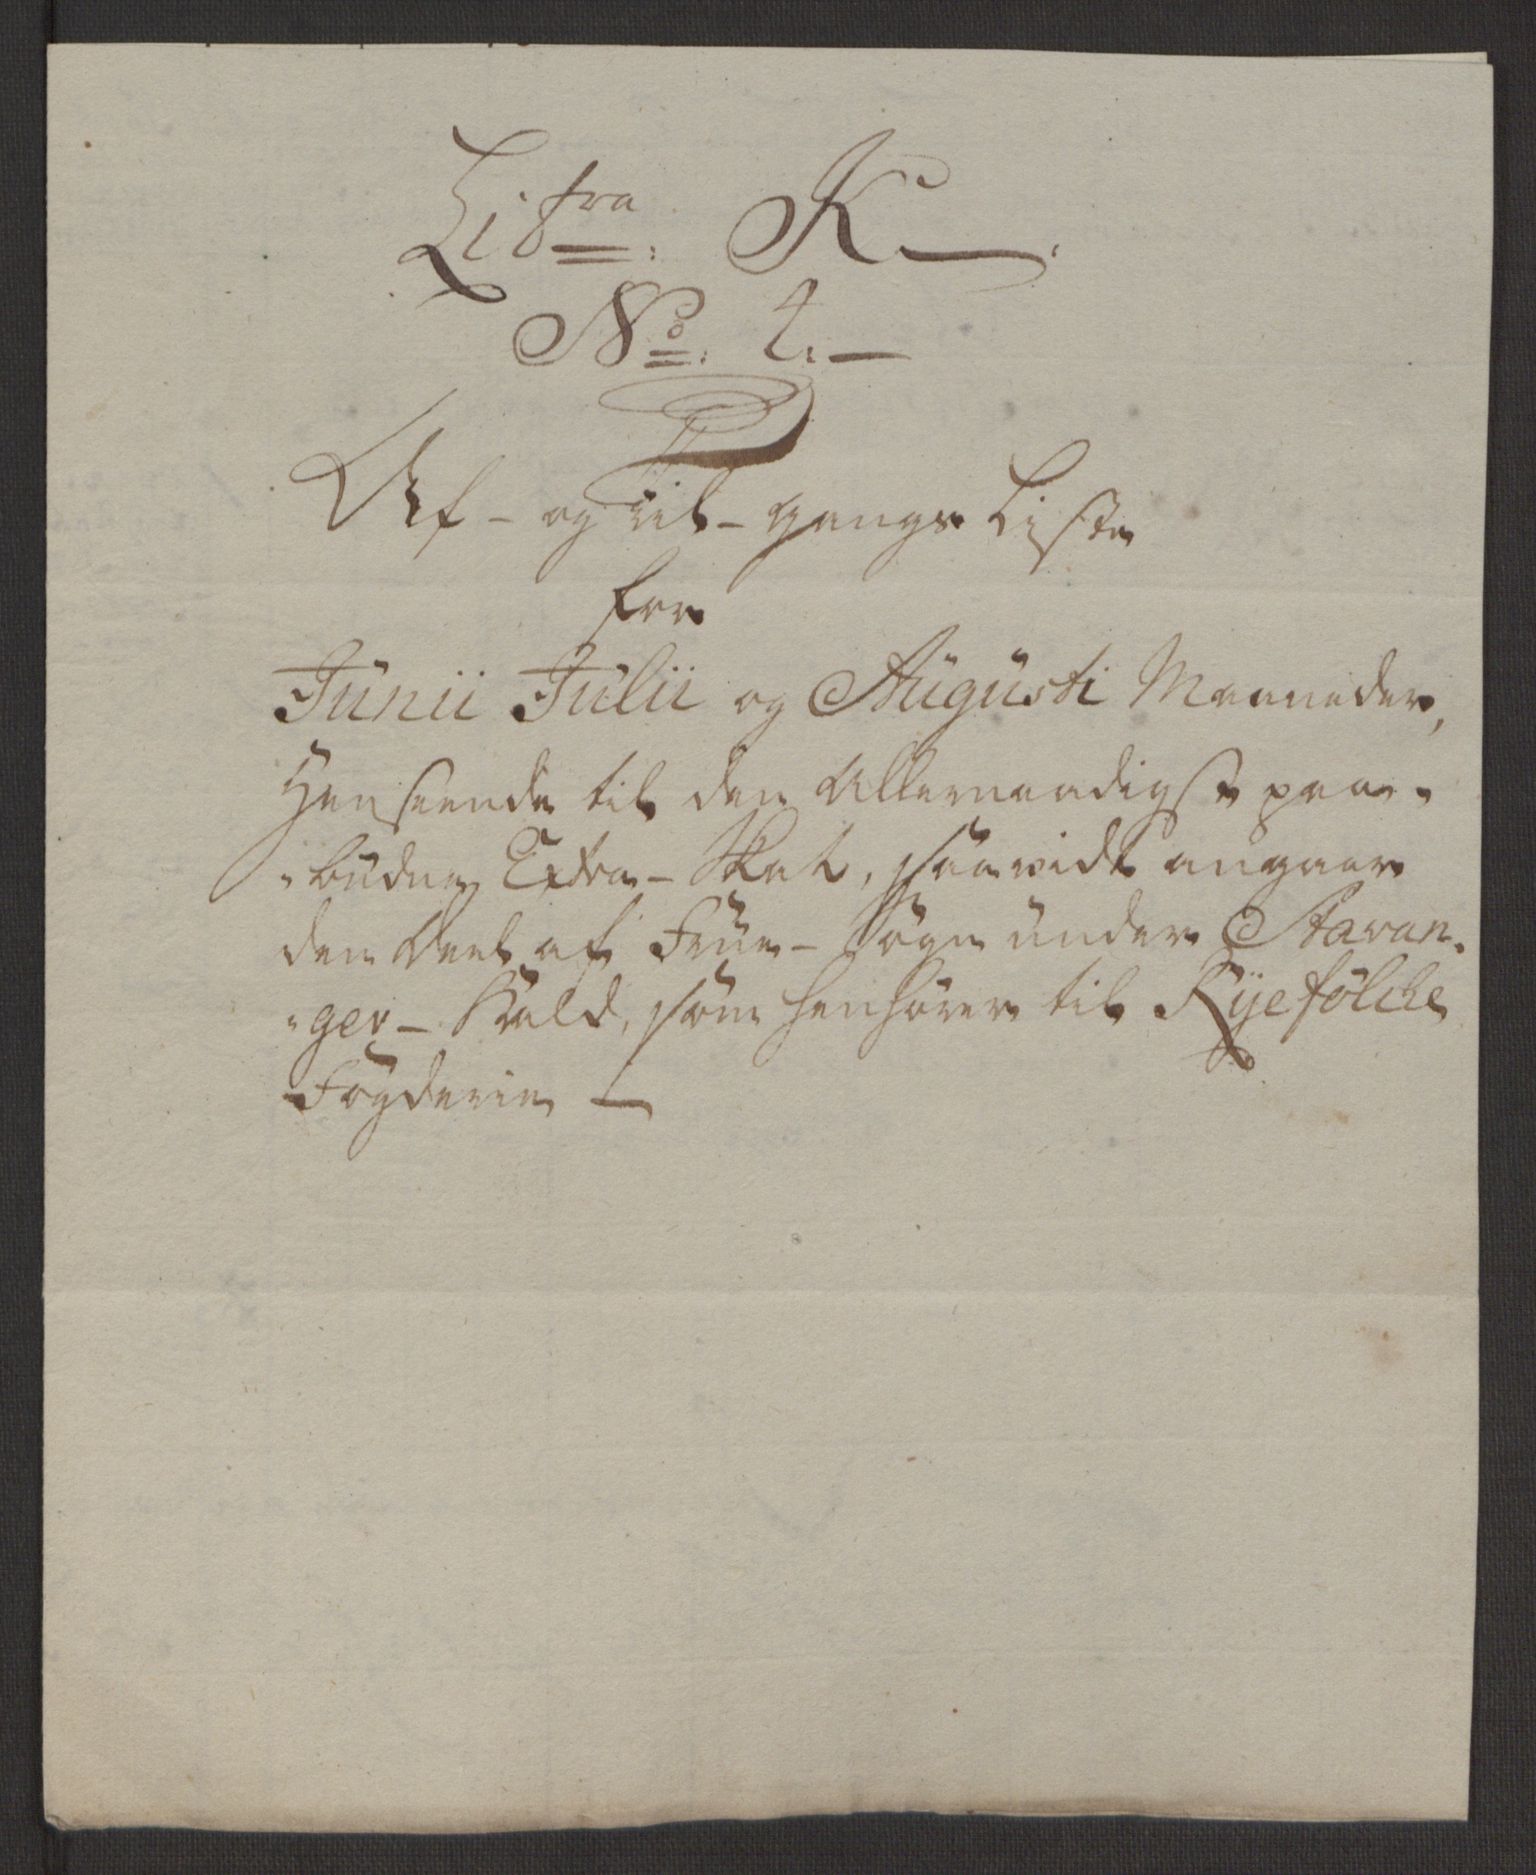 Litra: K.
No: 2.
Af- og til-gangs Liste
for
Junii Julii og Augusti Maaneder,
Henseende til den Allernaadigst paa-
-budne Extra-Skat, saavidt angaar
den Deel af Frue-Sogn under Stavan-
-ger-Kald, som henhører til Ryefølcke
Fogderie